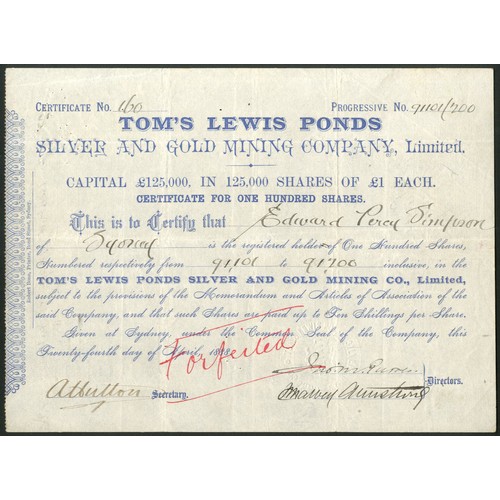 CERTIFICATE No. 160 PROGRESSIVE No. 91101/200
TOM'S LEWIS PONDS
SILVER AND GOLD MINING COMPANY, Limited.
CAPITAL £125,000, IN 125,000 SHARES OF £1 EACH.
CERTIFICATE FOR ONE HUNDRED SHARES.
This is to Certify that Edward Percy Simpson
of Sydney is the registered holder of One Hundred Shares,
Numbered respectively from 91,101 to 91200 inclusive, in the
TOM'S LEWIS PONDS SILVER AND GOLD MINING CO., Limited,
subject to the provisions of the Memorandum and Articles of Association of the
said Company, and that such Shares are paid up to Ten Shillings per Share.
Given at Sydney, under the Common Seal of the Company, this
Twenty-fourth day of April,
Forfeited
Directors.
Secretary.
Armstrong